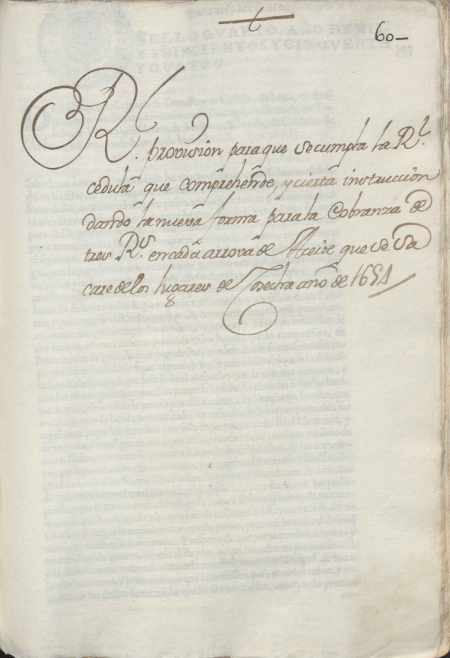 60
Rl. provision para que se cumpla la Rl.
cedula que comprehende, y cierta instrucción
dando la nueva forma para la Cobranza de
tres Rs. en cada arrova de Aceite que se Sa
care de los lugares de Cosecha año de 1654